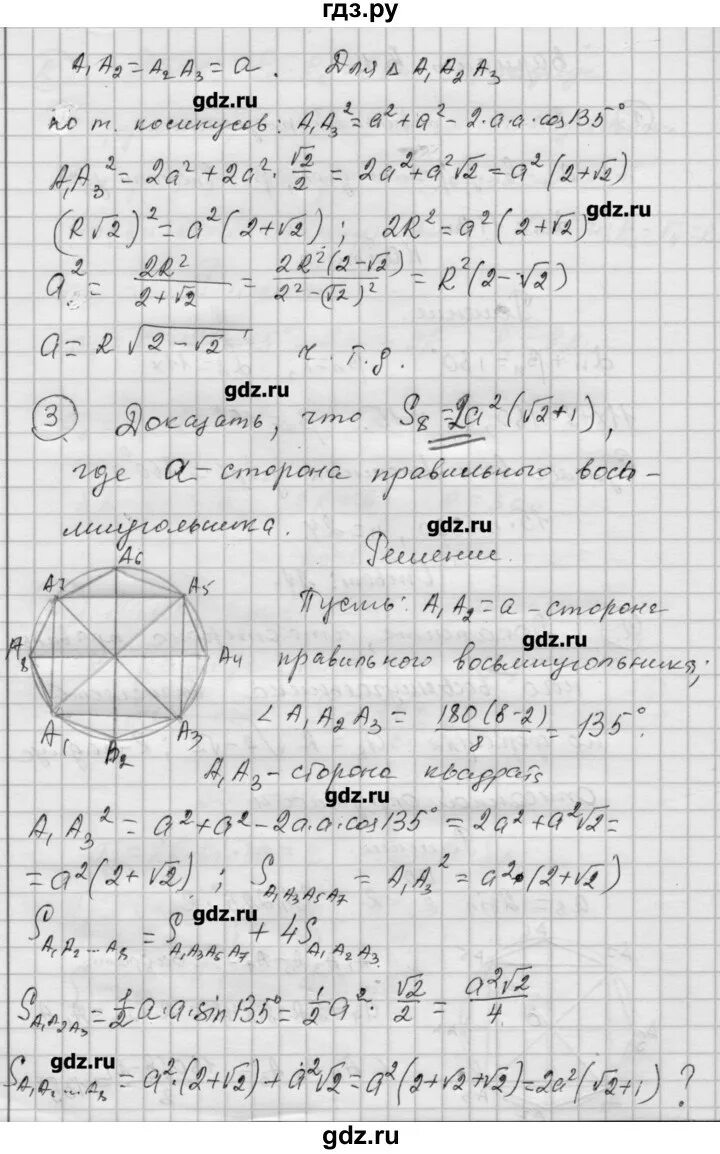 гдз.ру
A₁A₂ = A₂A₃ = a. Для Δ A₁A₂A₃
gdz.ru
по т. косинусов: A₁A₃² = a² + a² − 2·a·a·cos135°
A₁A₃² = 2a² + 2a²·√2/2 = 2a² + a²√2 = a²(2+√2)
gdz.ru
(R√2)² = a²(2+√2); 2R² = a²(2+√2)
a² = 2R²/(2+√2) = 2R²(2−√2)/(2²−(√2)²) = R²(2−√2)
a = R√(2−√2) ч.т.д.
gdz.ru
③ Доказать, что S₈ = 2a²(√2+1),
где a – сторона правильного вось-
миугольника.
gdz.ru
Решение.
A₆
A₇ A₅
A₈ A₄
A₁ A₃
A₂
Пусть: A₁A₂ = a – сторона
gdz.ru
правильного восьмиугольника;
∠A₁A₂A₃ = 180(8−2)/8 = 135°.
A₁A₃ – сторона квадрата
gdz.ru
A₁A₃² = a² + a² − 2a·a·cos135° = 2a² + a²√2 =
= a²(2+√2); S_A₁A₃A₅A₇ = A₁A₃² = a²·(2+√2)
gdz.ru
S_A₁A₂...A₈ = S_A₁A₃A₅A₇ + 4S_A₁A₂A₃.
S_A₁A₂A₃ = 1/2 a·a·sin135° = 1/2 a²·√2/2 = a²√2/4.
gdz.ru
S_A₁A₂...A₈ = a²·(2+√2) + a²√2 = a²(2+√2+√2) = 2a²(√2+1) ?
gdz.ru